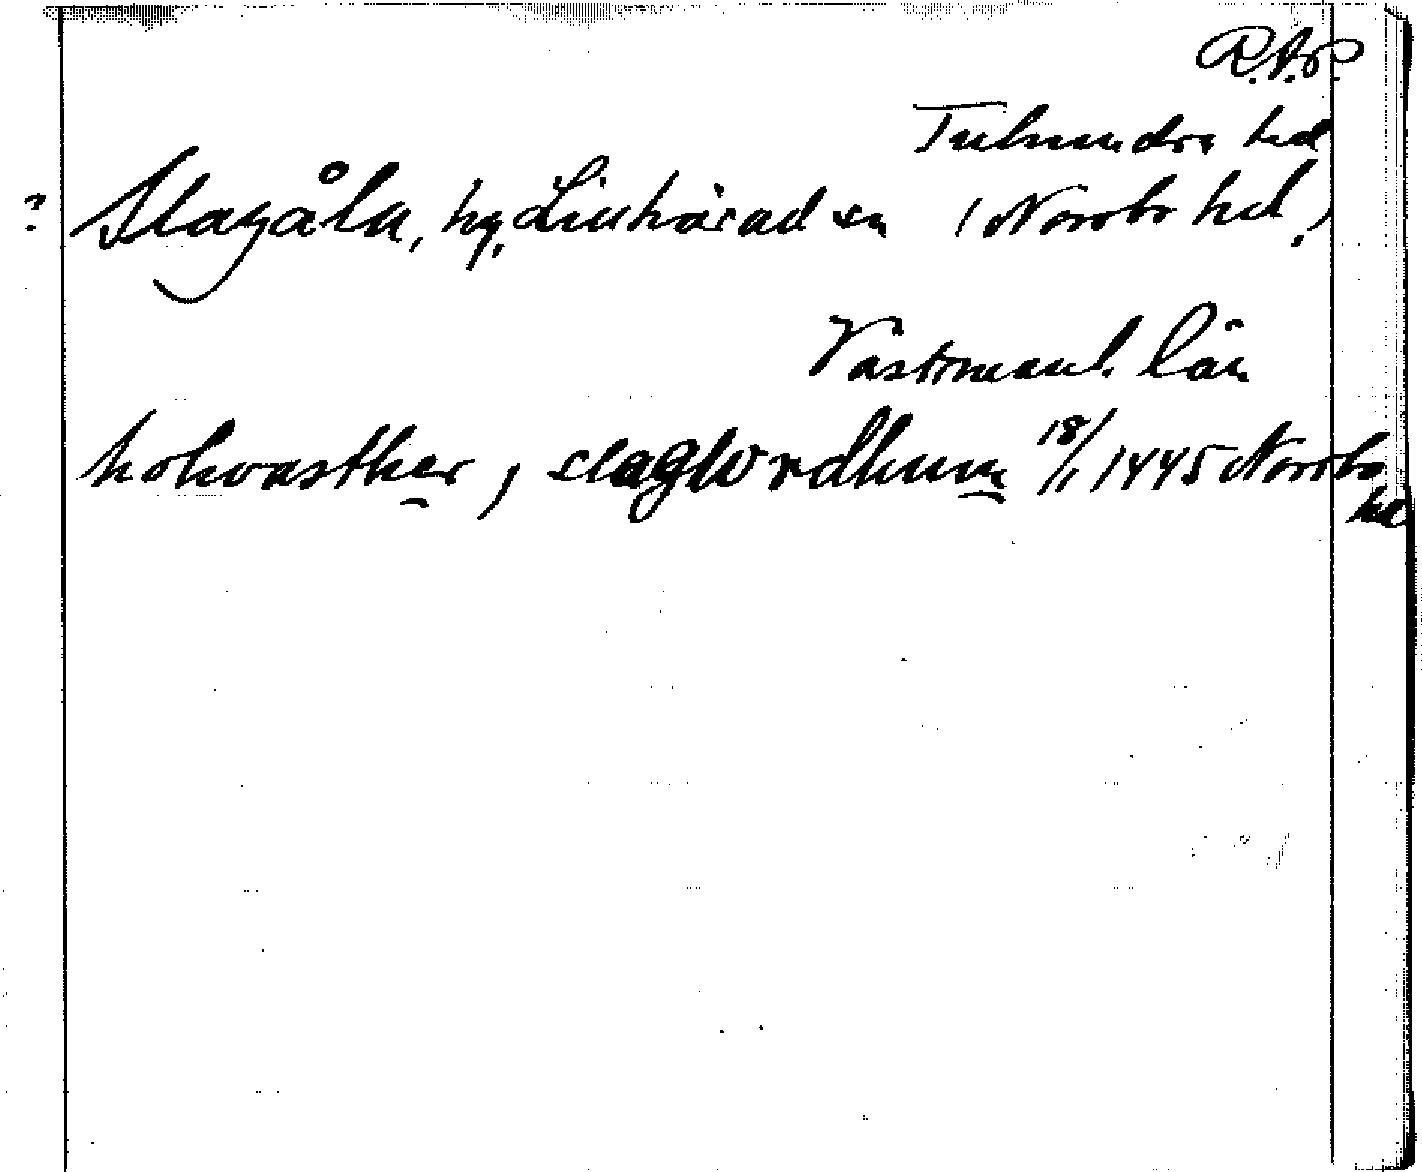 R.A.P.
Tuhundra hd
? Slagåln, by, Lillhärad sn (Norrbo hd.)
Västmanl. län
holwasther, i slagwrdhum 18/1 1445 Norrbo
hd